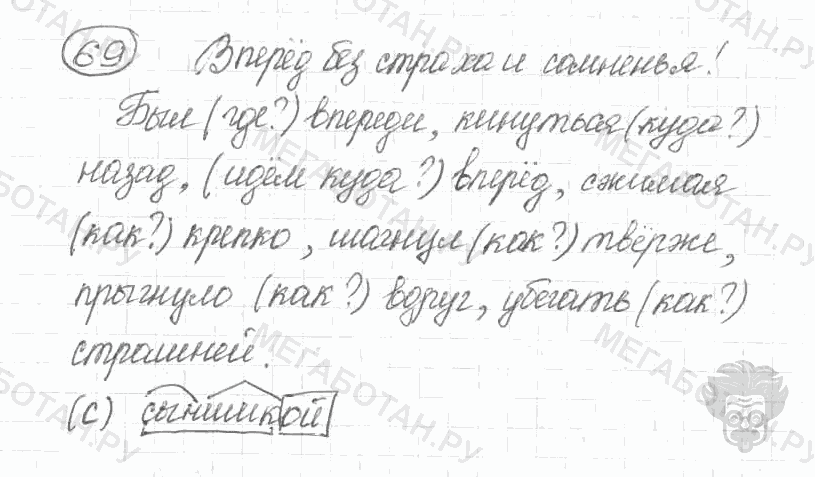 69 Вперёд без страха и сомненья!
Был (где?) впереди, кинуться (куда?)
назад, (идём куда?) вперёд, сжимая
(как?) крепко, шагнул (как?) твёрже,
прыгнуло (как?) вдруг, убегать (как?)
страшней.
(С) сынишкой
МЕГАБОТАН.РУ